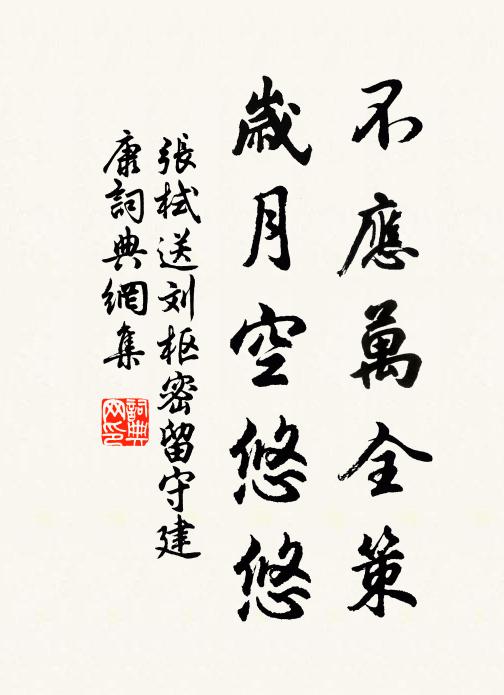 不應萬全策
歲月空悠悠
張栻送刘枢密留守建
康詞典網集
詞典
网印